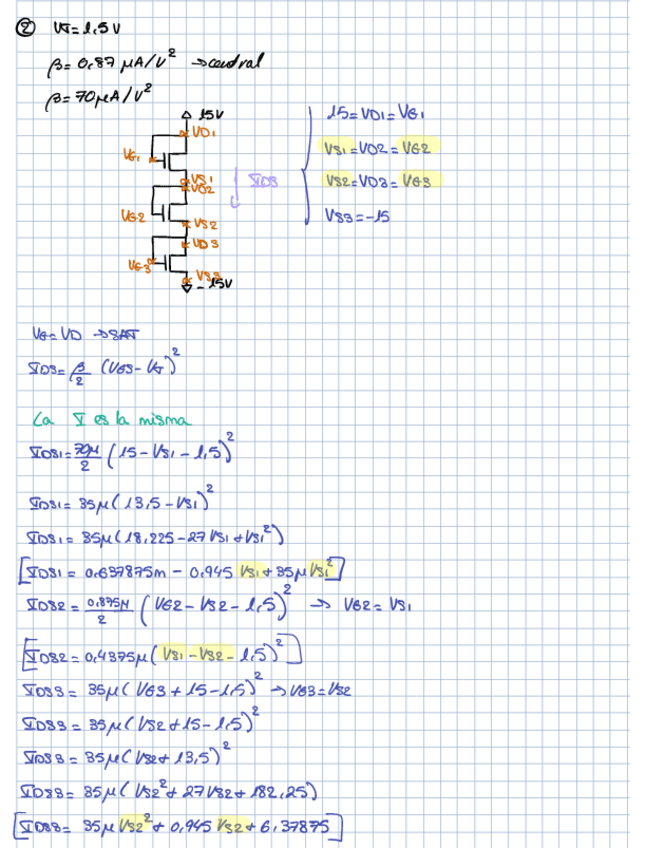 ② VT = 1,5 V
β = 0,87 μA/V² → central
β = 70 μA/V²
15V
VD1
VG1
VS1
VD2
VG2
VS2
VD3
VG3
VS3
-15V
IDS
15 = VD1 = VG1
VS1 = VD2 = VG2
VS2 = VD3 = VG3
VS3 = -15
VG = VD → SAT
IDS = β/2 (VGS - VT)²
La I es la misma
IDS1 = 70μ/2 (15 - VS1 - 1,5)²
IDS1 = 35μ (13,5 - VS1)²
IDS1 = 35μ (18,225 - 27 VS1 + VS1²)
[IDS1 = 0,637875m - 0,945 VS1 + 35μ VS1²]
IDS2 = 0,875μ/2 (VG2 - VS2 - 1,5)² → VG2 = VS1
[IDS2 = 0,4375μ (VS1 - VS2 - 1,5)²]
IDS3 = 35μ (VG3 + 15 - 1,5)² → VG3 = VS2
IDS3 = 35μ (VS2 + 15 - 1,5)²
IDS3 = 35μ (VS2 + 13,5)²
IDS3 = 35μ (VS2² + 27 VS2 + 182,25)
[IDS3 = 35μ VS2² + 0,945 VS2 + 6,37875]